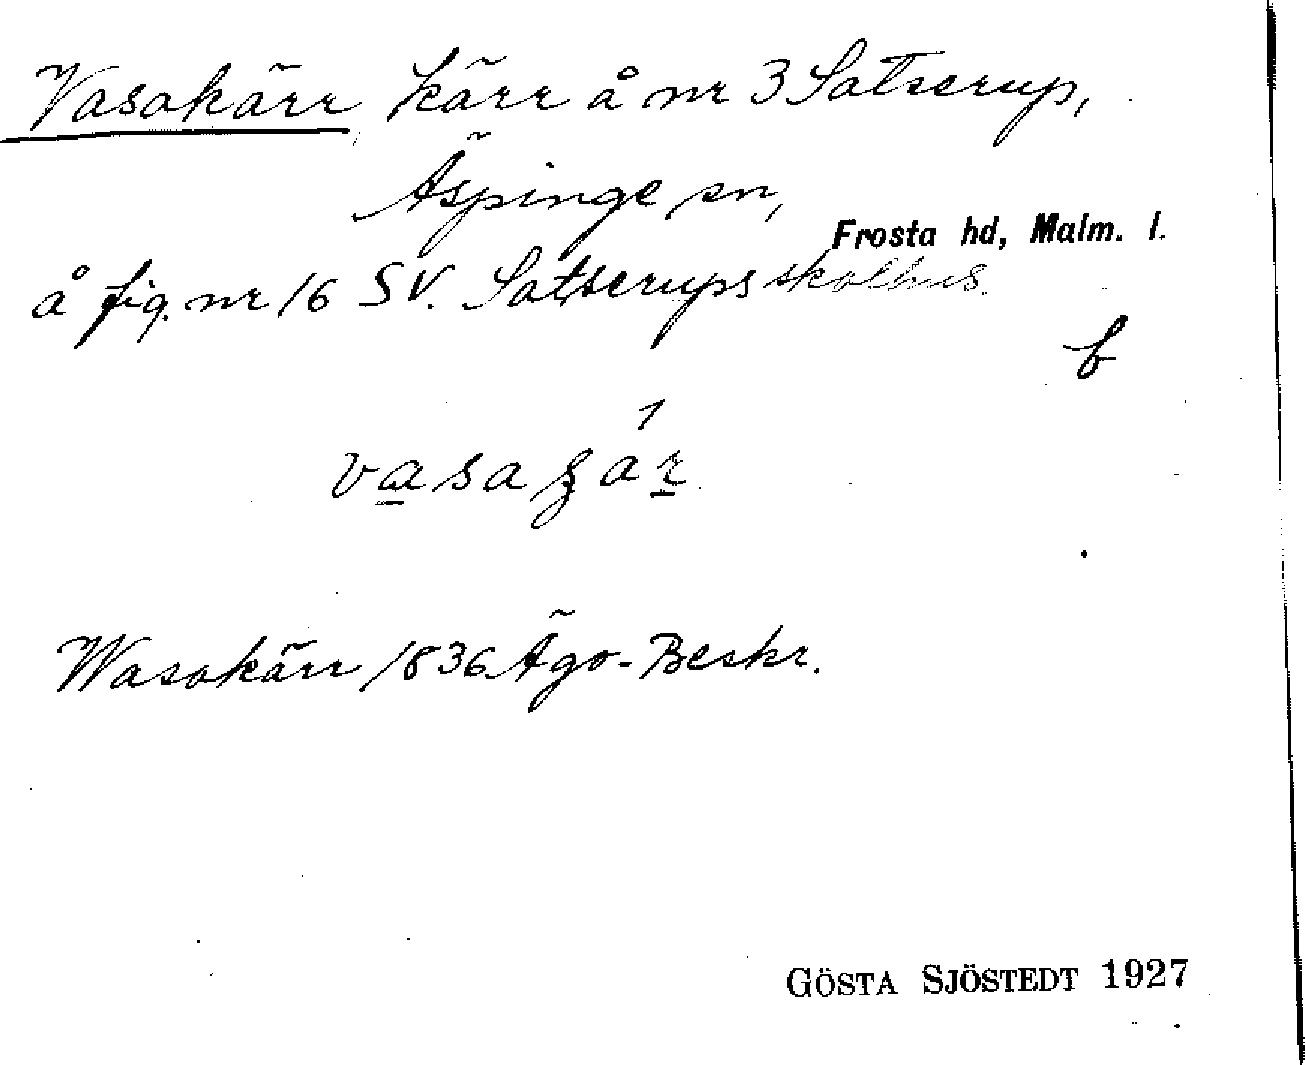 Vasakärr, kärr å nr 3 Satserup,
Äspinge sn,
Frosta hd, Malm. l.
å fig. nr 16 SV. Satserups skolhus.
b
Wasakärr 1836 Ägo-Beskr.
GÖSTA SJÖSTEDT 1927